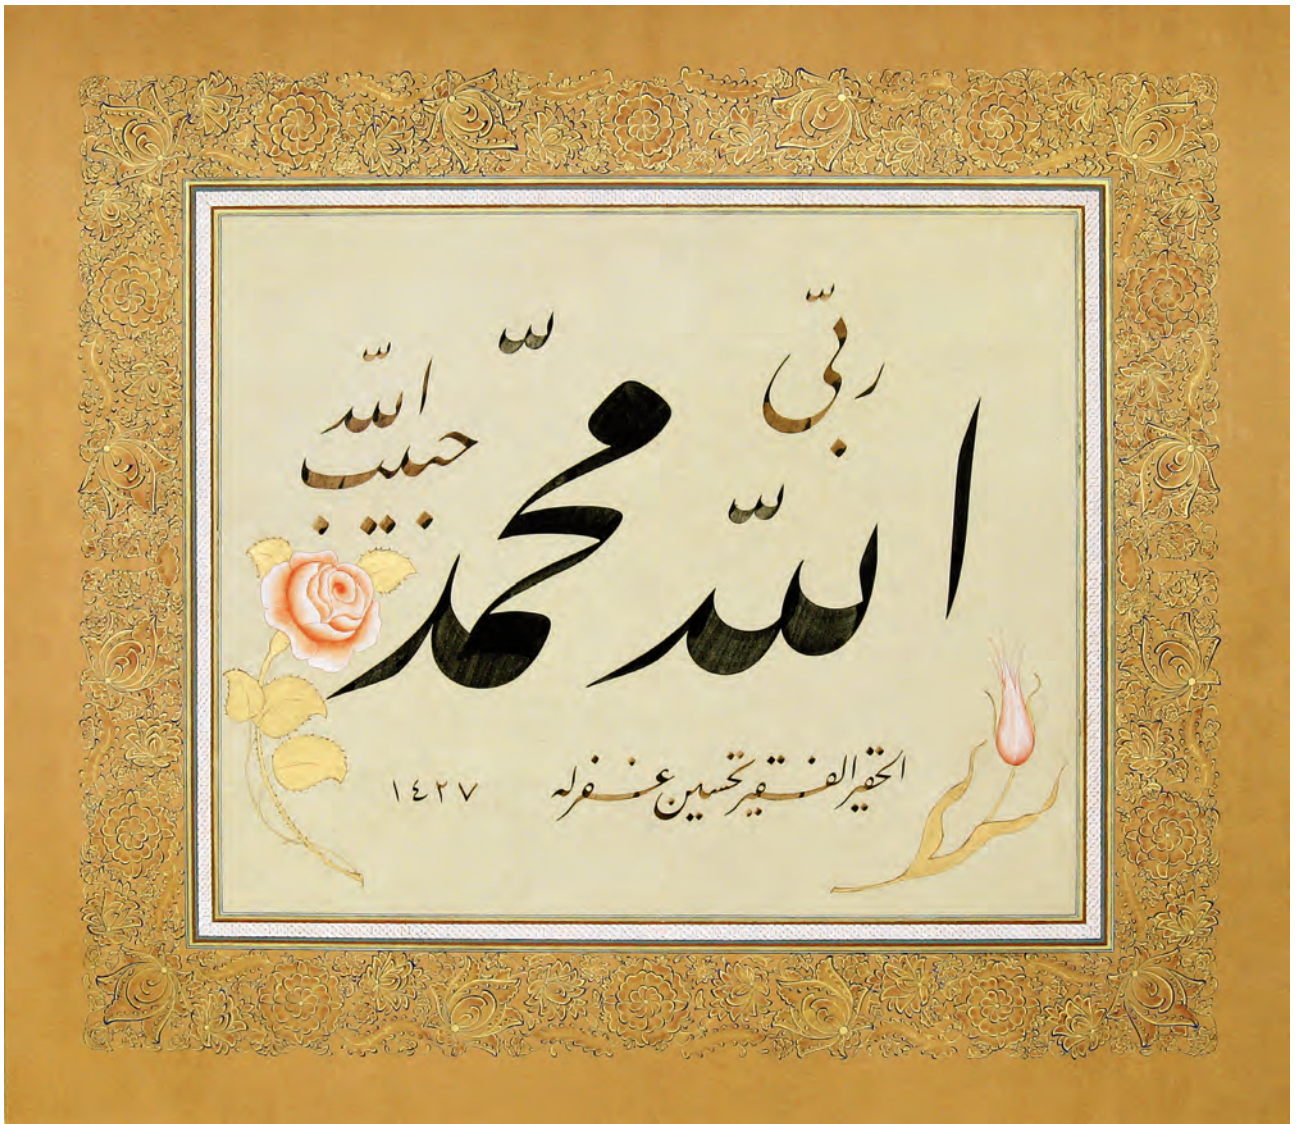 الله ربّي
محمّد حبيب الله
الحقير الفقير تحسين غفر له
١٤٢٧